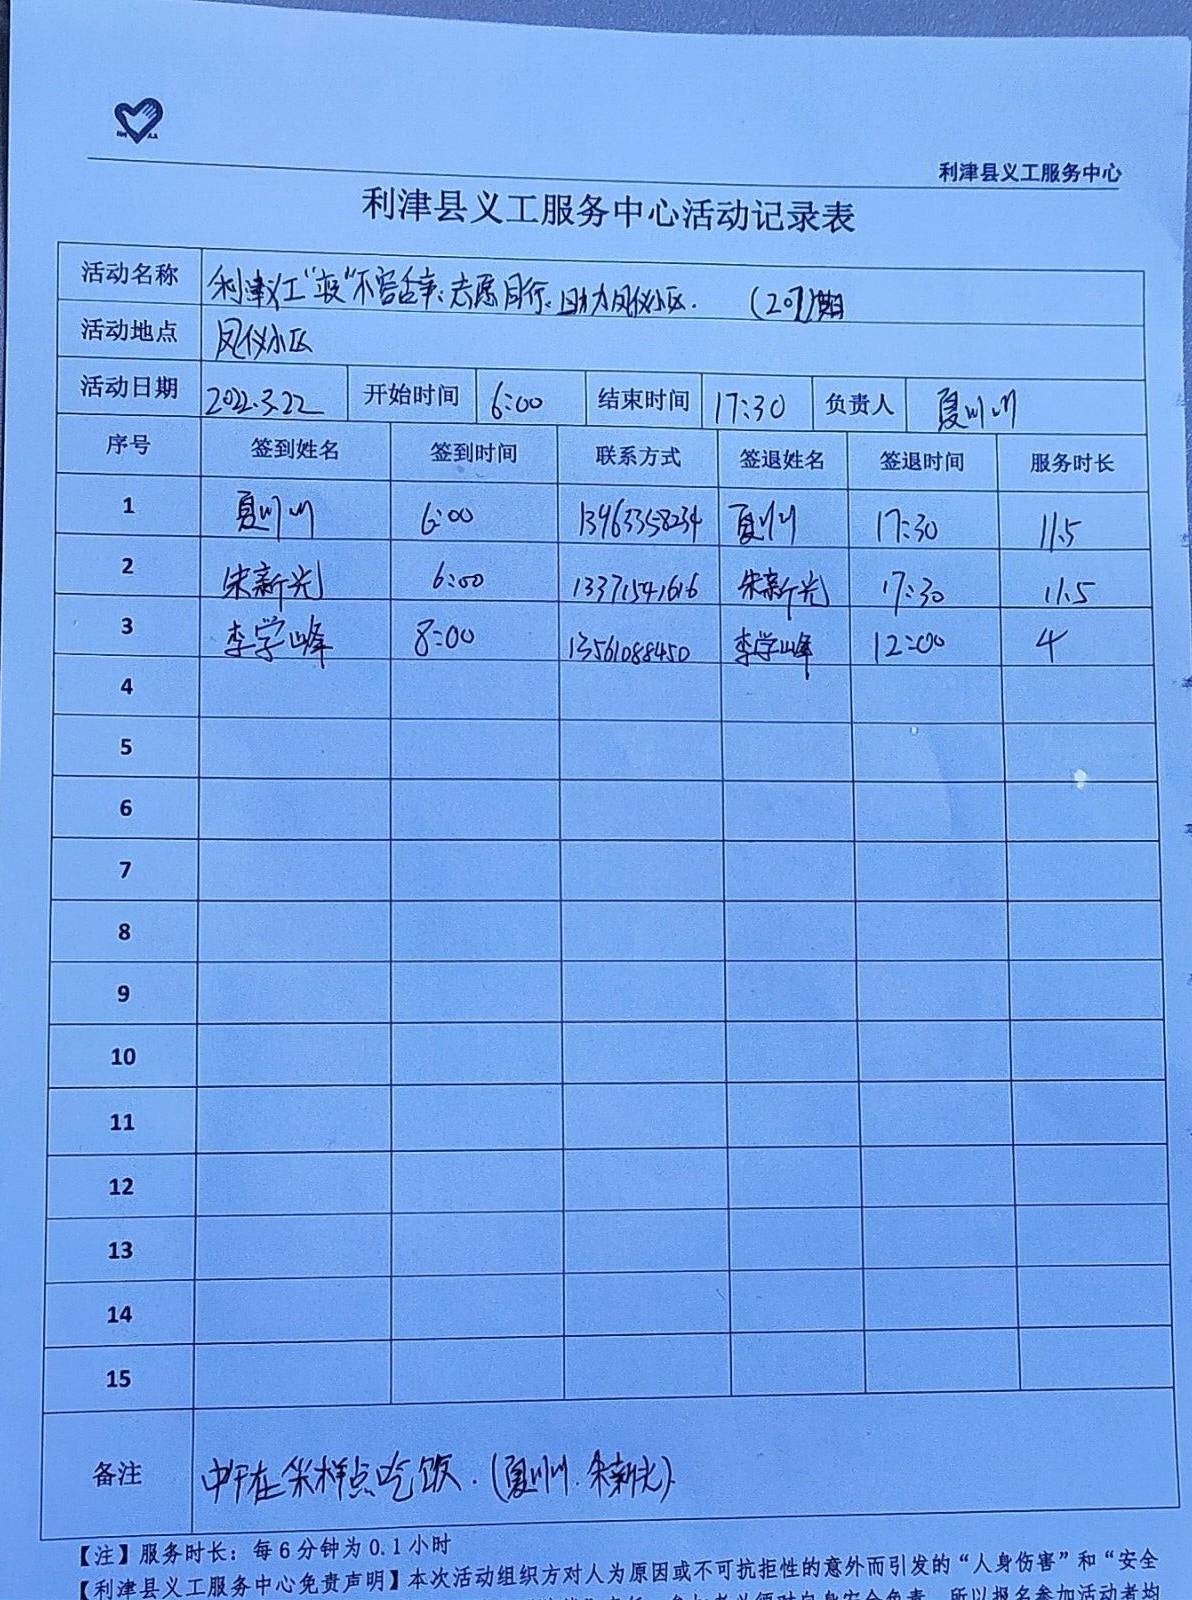 利津县义工服务中心
利津县义工服务中心活动记录表
活动名称 利津义工"疫"不容辞、志愿同行、助力凤仪小区. (201)期
活动地点 凤仪小区
活动日期 2022.3.22 开始时间 6:00 结束时间 17:30 负责人 夏川川
序号 签到姓名 签到时间 联系方式 签退姓名 签退时间 服务时长
1 夏川川 6:00 13963358234 夏川川 17:30 11.5
2 宋新光 6:00 13371541616 宋新光 17:30 11.5
3 李学峰 8:00 13561088450 李学峰 12:00 4
4
5
6
7
8
9
10
11
12
13
14
15
备注 中午在采样点吃饭.(夏川川.宋新光)
【注】服务时长：每6分钟为0.1小时
【利津县义工服务中心免责声明】本次活动组织方对人为原因或不可抗拒性的意外而引发的“人身伤害”和“安全